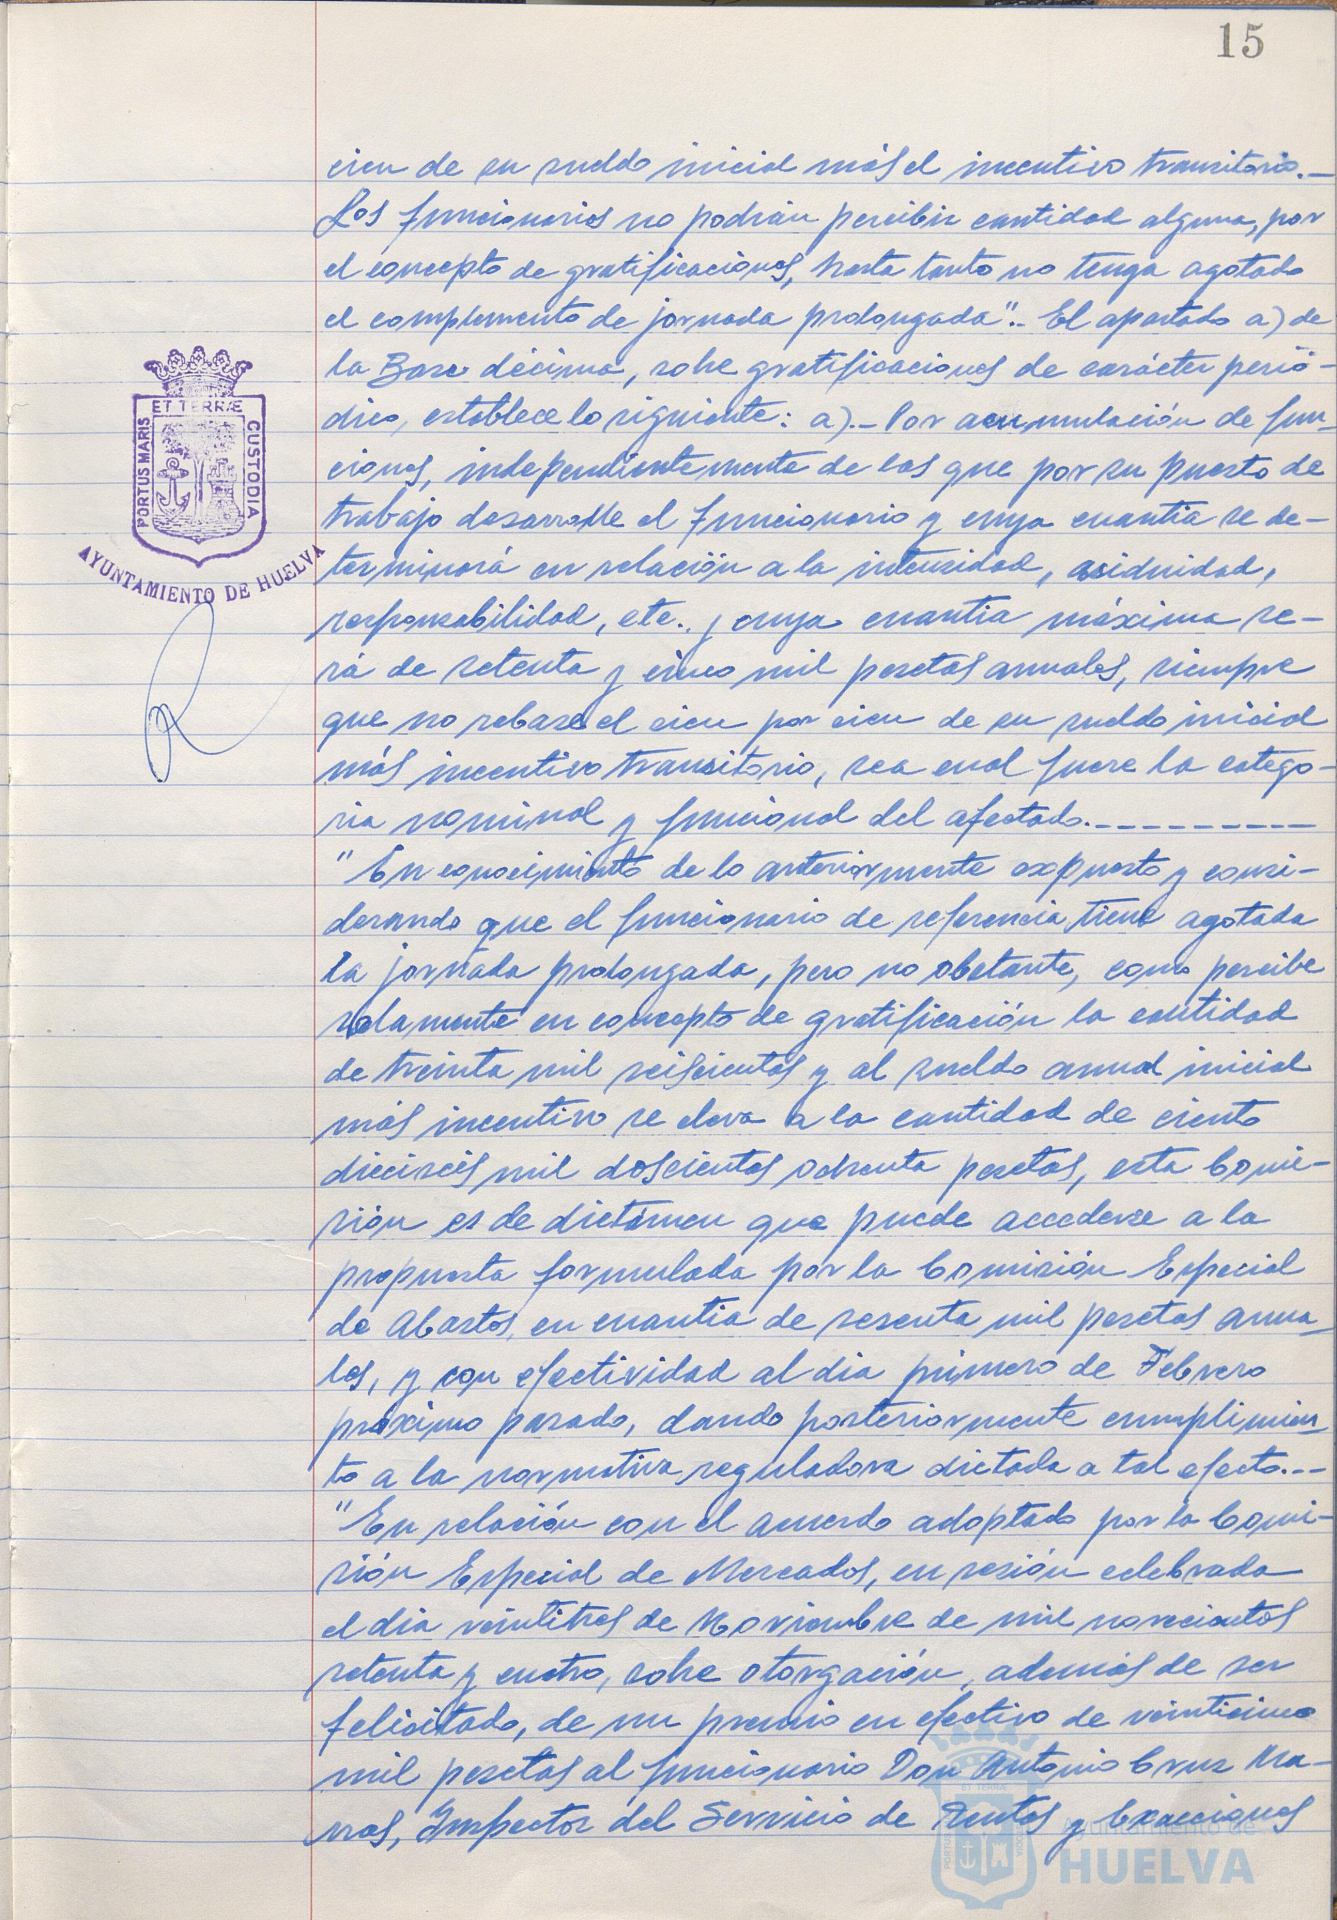 15
cien de su sueldo inicial más el incentivo transitorio.—
Los funcionarios no podrán percibir cantidad alguna, por
el concepto de gratificaciones, hasta tanto no tenga agotado
el complemento de jornada prolongada".- El apartado a) de
la Base décima, sobre gratificaciones de carácter perió-
dico, establece lo siguiente: a).- Por acumulación de fun-
ciones, independientemente de las que por su puesto de
trabajo desarrolle el funcionario y cuya cuantia se de-
terminará en relación a la intensidad, asiduidad,
responsabilidad, etc. y cuya cuantia máxima se-
rá de setenta y cinco mil pesetas anuales, siempre
que no rebase el cien por cien de su sueldo inicial
más incentivo transitorio, sea cual fuere la catego-
ria nominal y funcional del afectado.----------
"En conocimiento de lo anteriormente expuesto y consi-
derando que el funcionario de referencia tiene agotada
la jornada prolongada, pero no obstante, como percibe
solamente en concepto de gratificación la cantidad
de treinta mil seiscientas y al sueldo anual inicial
más incentivo se eleva a la cantidad de ciento
dieciseis mil doscientas ochenta pesetas, esta Comi-
sión es de dictámen que puede accederse a la
propuesta formulada por la Comisión Especial
de Abastos, en cuantia de sesenta mil pesetas anua-
les, y con efectividad al dia primero de Febrero
próximo pasado, dando posteriormente cumplimien-
to a la normativa reguladora dictada a tal efecto.--
"En relación con el acuerdo adoptado por la Comi-
sión Especial de Mercados, en sesión celebrada
el dia veintitres de Noviembre de mil novecientos
setenta y cuatro, sobre otorgación, además de ser
felicitado, de un premio en efectivo de veinticinco
mil pesetas al funcionario Don Antonio Cruz Ma-
rras, Inspector del Servicio de Rentas y Exacciones
PORTUS MARIS ET TERRÆ CUSTODIA
AYUNTAMIENTO DE HUELVA
Ayuntamiento de
HUELVA